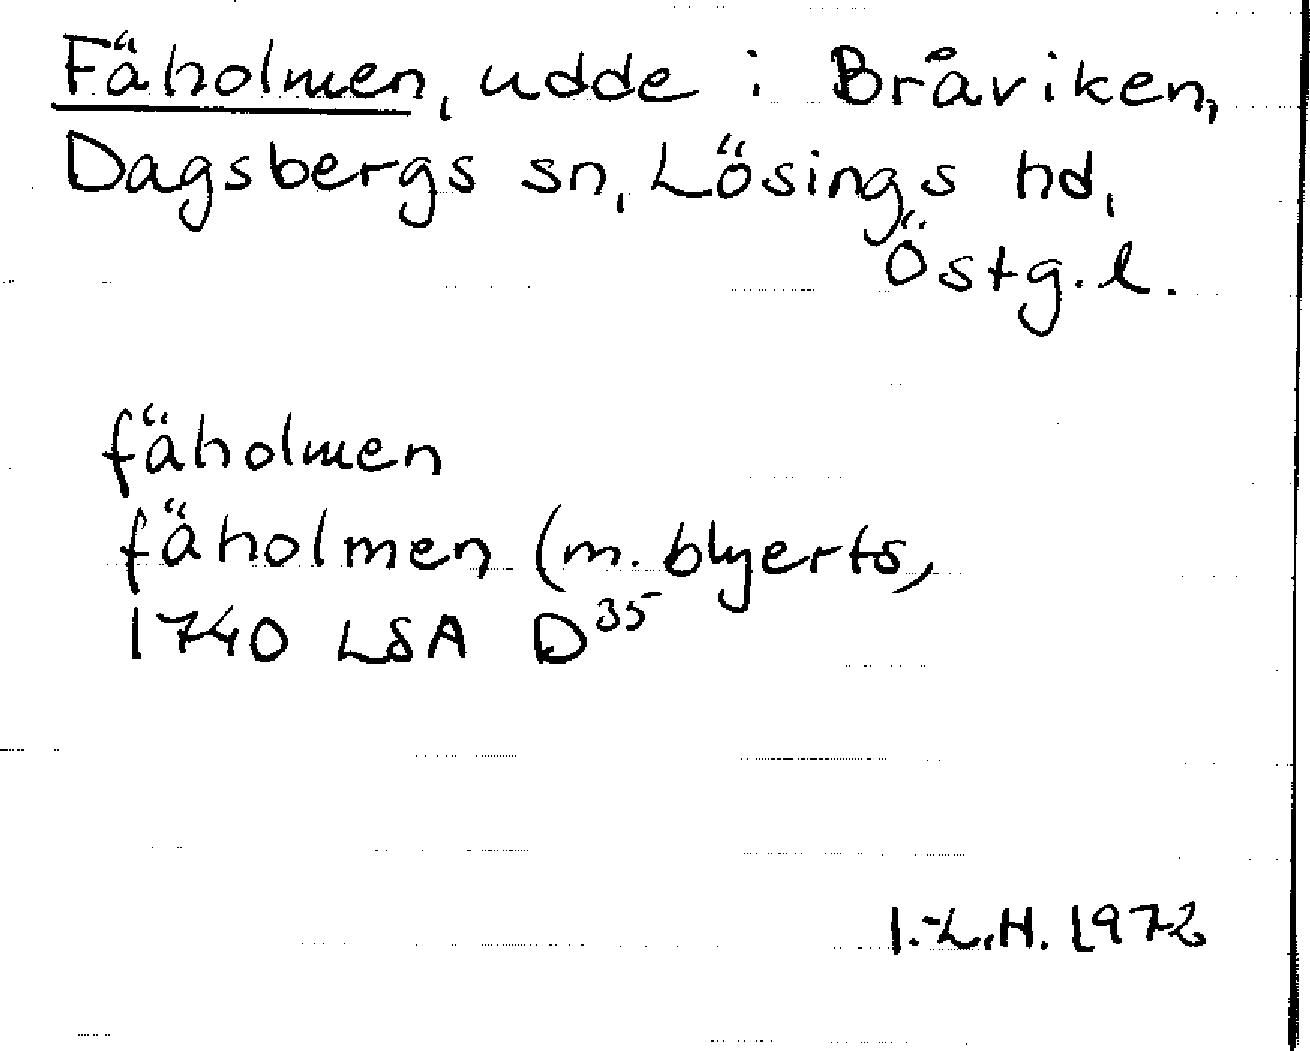 Fäholmen, udde i Bråviken,
Dagsbergs sn, Lösings hd,
Östg.l.
fäholmen
fäholmen (m. blyerts,
1740 LSA D35
I.-L.H. 1972